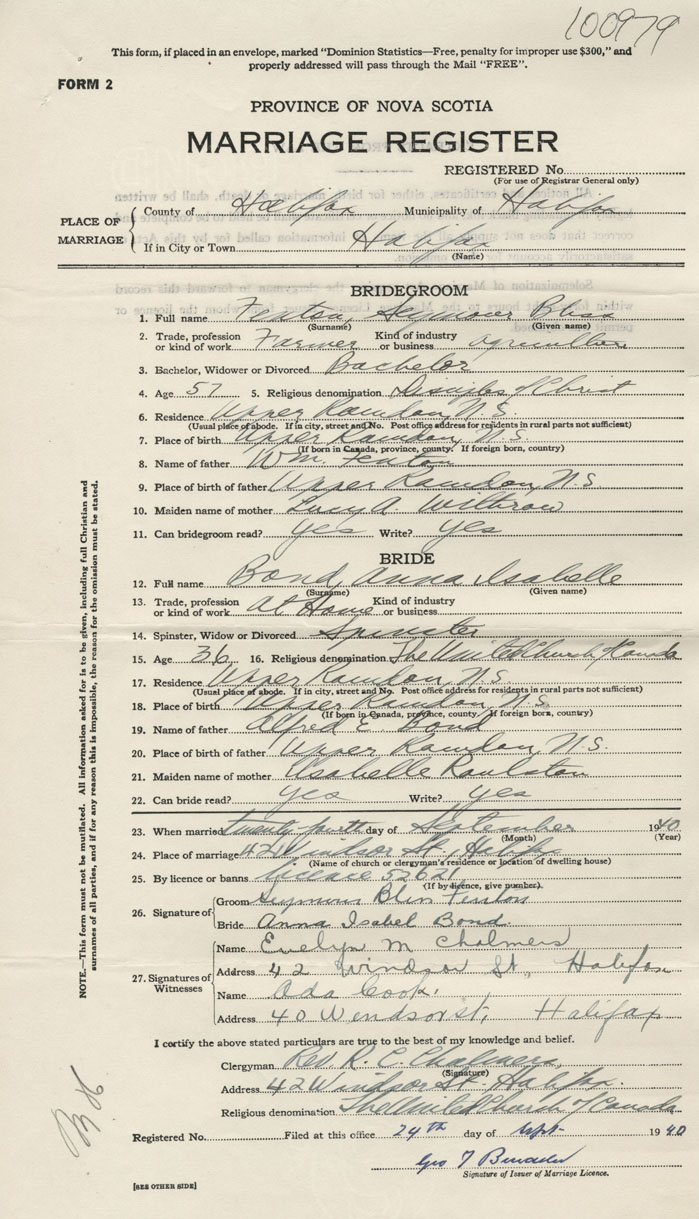 100979
This form, if placed in an envelope, marked "Dominion Statistics—Free, penalty for improper use $300," and
properly addressed will pass through the Mail "FREE".
FORM 2
PROVINCE OF NOVA SCOTIA
MARRIAGE REGISTER
REGISTERED No.
(For use of Registrar General only)
PLACE OF MARRIAGE
County of Halifax Municipality of Halifax
If in City or Town Halifax
(Name)
BRIDEGROOM
1. Full name Fenton, Seymour Bliss
(Surname) (Given name)
2. Trade, profession or kind of work Farmer Kind of industry or business agriculture
3. Bachelor, Widower or Divorced Bachelor
4. Age 57 5. Religious denomination Disciples of Christ
6. Residence Upper Rawdon, N.S.
(Usual place of abode. If in city, street and No. Post office address for residents in rural parts not sufficient)
7. Place of birth Upper Rawdon, N.S.
(If born in Canada, province, county. If foreign born, country)
8. Name of father Wm. Fenton
9. Place of birth of father Upper Rawdon, N.S.
10. Maiden name of mother Lucy A. Withrow
11. Can bridegroom read? yes Write? yes
BRIDE
12. Full name Bond, Anna Isabelle
(Surname) (Given name)
13. Trade, profession or kind of work at Home Kind of industry or business
14. Spinster, Widow or Divorced Spinster
15. Age 36 16. Religious denomination The United Church of Canada
17. Residence Upper Rawdon, N.S.
(Usual place of abode. If in city, street and No. Post office address for residents in rural parts not sufficient)
18. Place of birth Upper Rawdon, N.S.
(If born in Canada, province, county. If foreign born, country)
19. Name of father Alfred E. Bond
20. Place of birth of father Upper Rawdon, N.S.
21. Maiden name of mother Isabelle Raulston
22. Can bride read? yes Write? yes
23. When married twenty-fourth day of September 1940
(Month) (Year)
24. Place of marriage 42 Windsor St., Halifax
(Name of church or clergyman's residence or location of dwelling house)
25. By licence or banns licence 52621
(If by licence, give number)
26. Signature of
Groom Seymour Bliss Fenton
Bride Anna Isabel Bond
27. Signatures of Witnesses
Name Evelyn M Chalmers
Address 42 Windsor St, Halifax
Name Ada Cook.
Address 40 Windsor st, Halifax
I certify the above stated particulars are true to the best of my knowledge and belief.
Clergyman Rev. R. C. Chalmers
(Signature)
Address 42 Windsor St. Halifax.
Religious denomination The United Church of Canada
Registered No. Filed at this office 24th day of Sept- 1940
Geo T
Signature of Issuer of Marriage Licence.
[SEE OTHER SIDE]
NOTE.—This form must not be mutilated. All information asked for is to be given, including full Christian and
surnames of all parties, and if for any reason this is impossible, the reason for the omission must be stated.